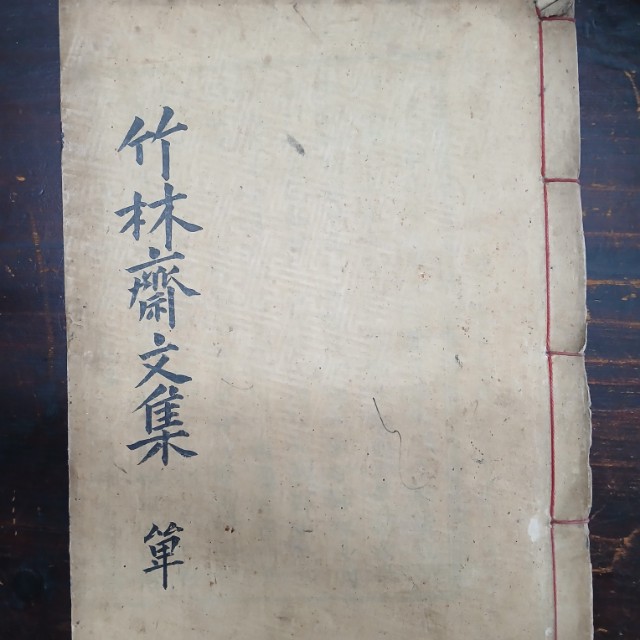 竹林齋文集
單